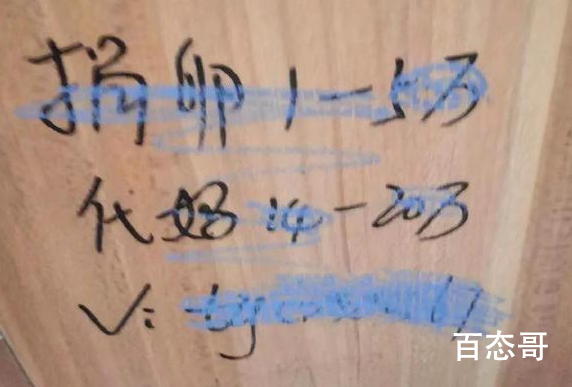 捐卵1-5万
代妈14-20万
V:
百态哥